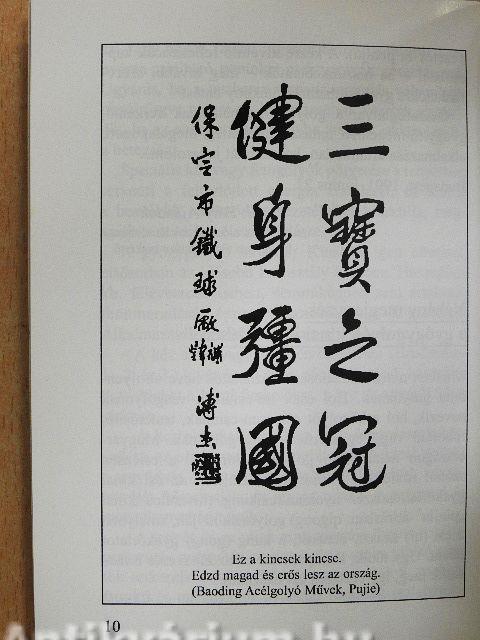 三寶之冠
健身彊國
保定市鐵球廠
溥杰
Ez a kincsek kincse.
Edzd magad és erős lesz az ország.
(Baoding Acélgolyó Művek, Pujie)
10
Antikvárium.hu